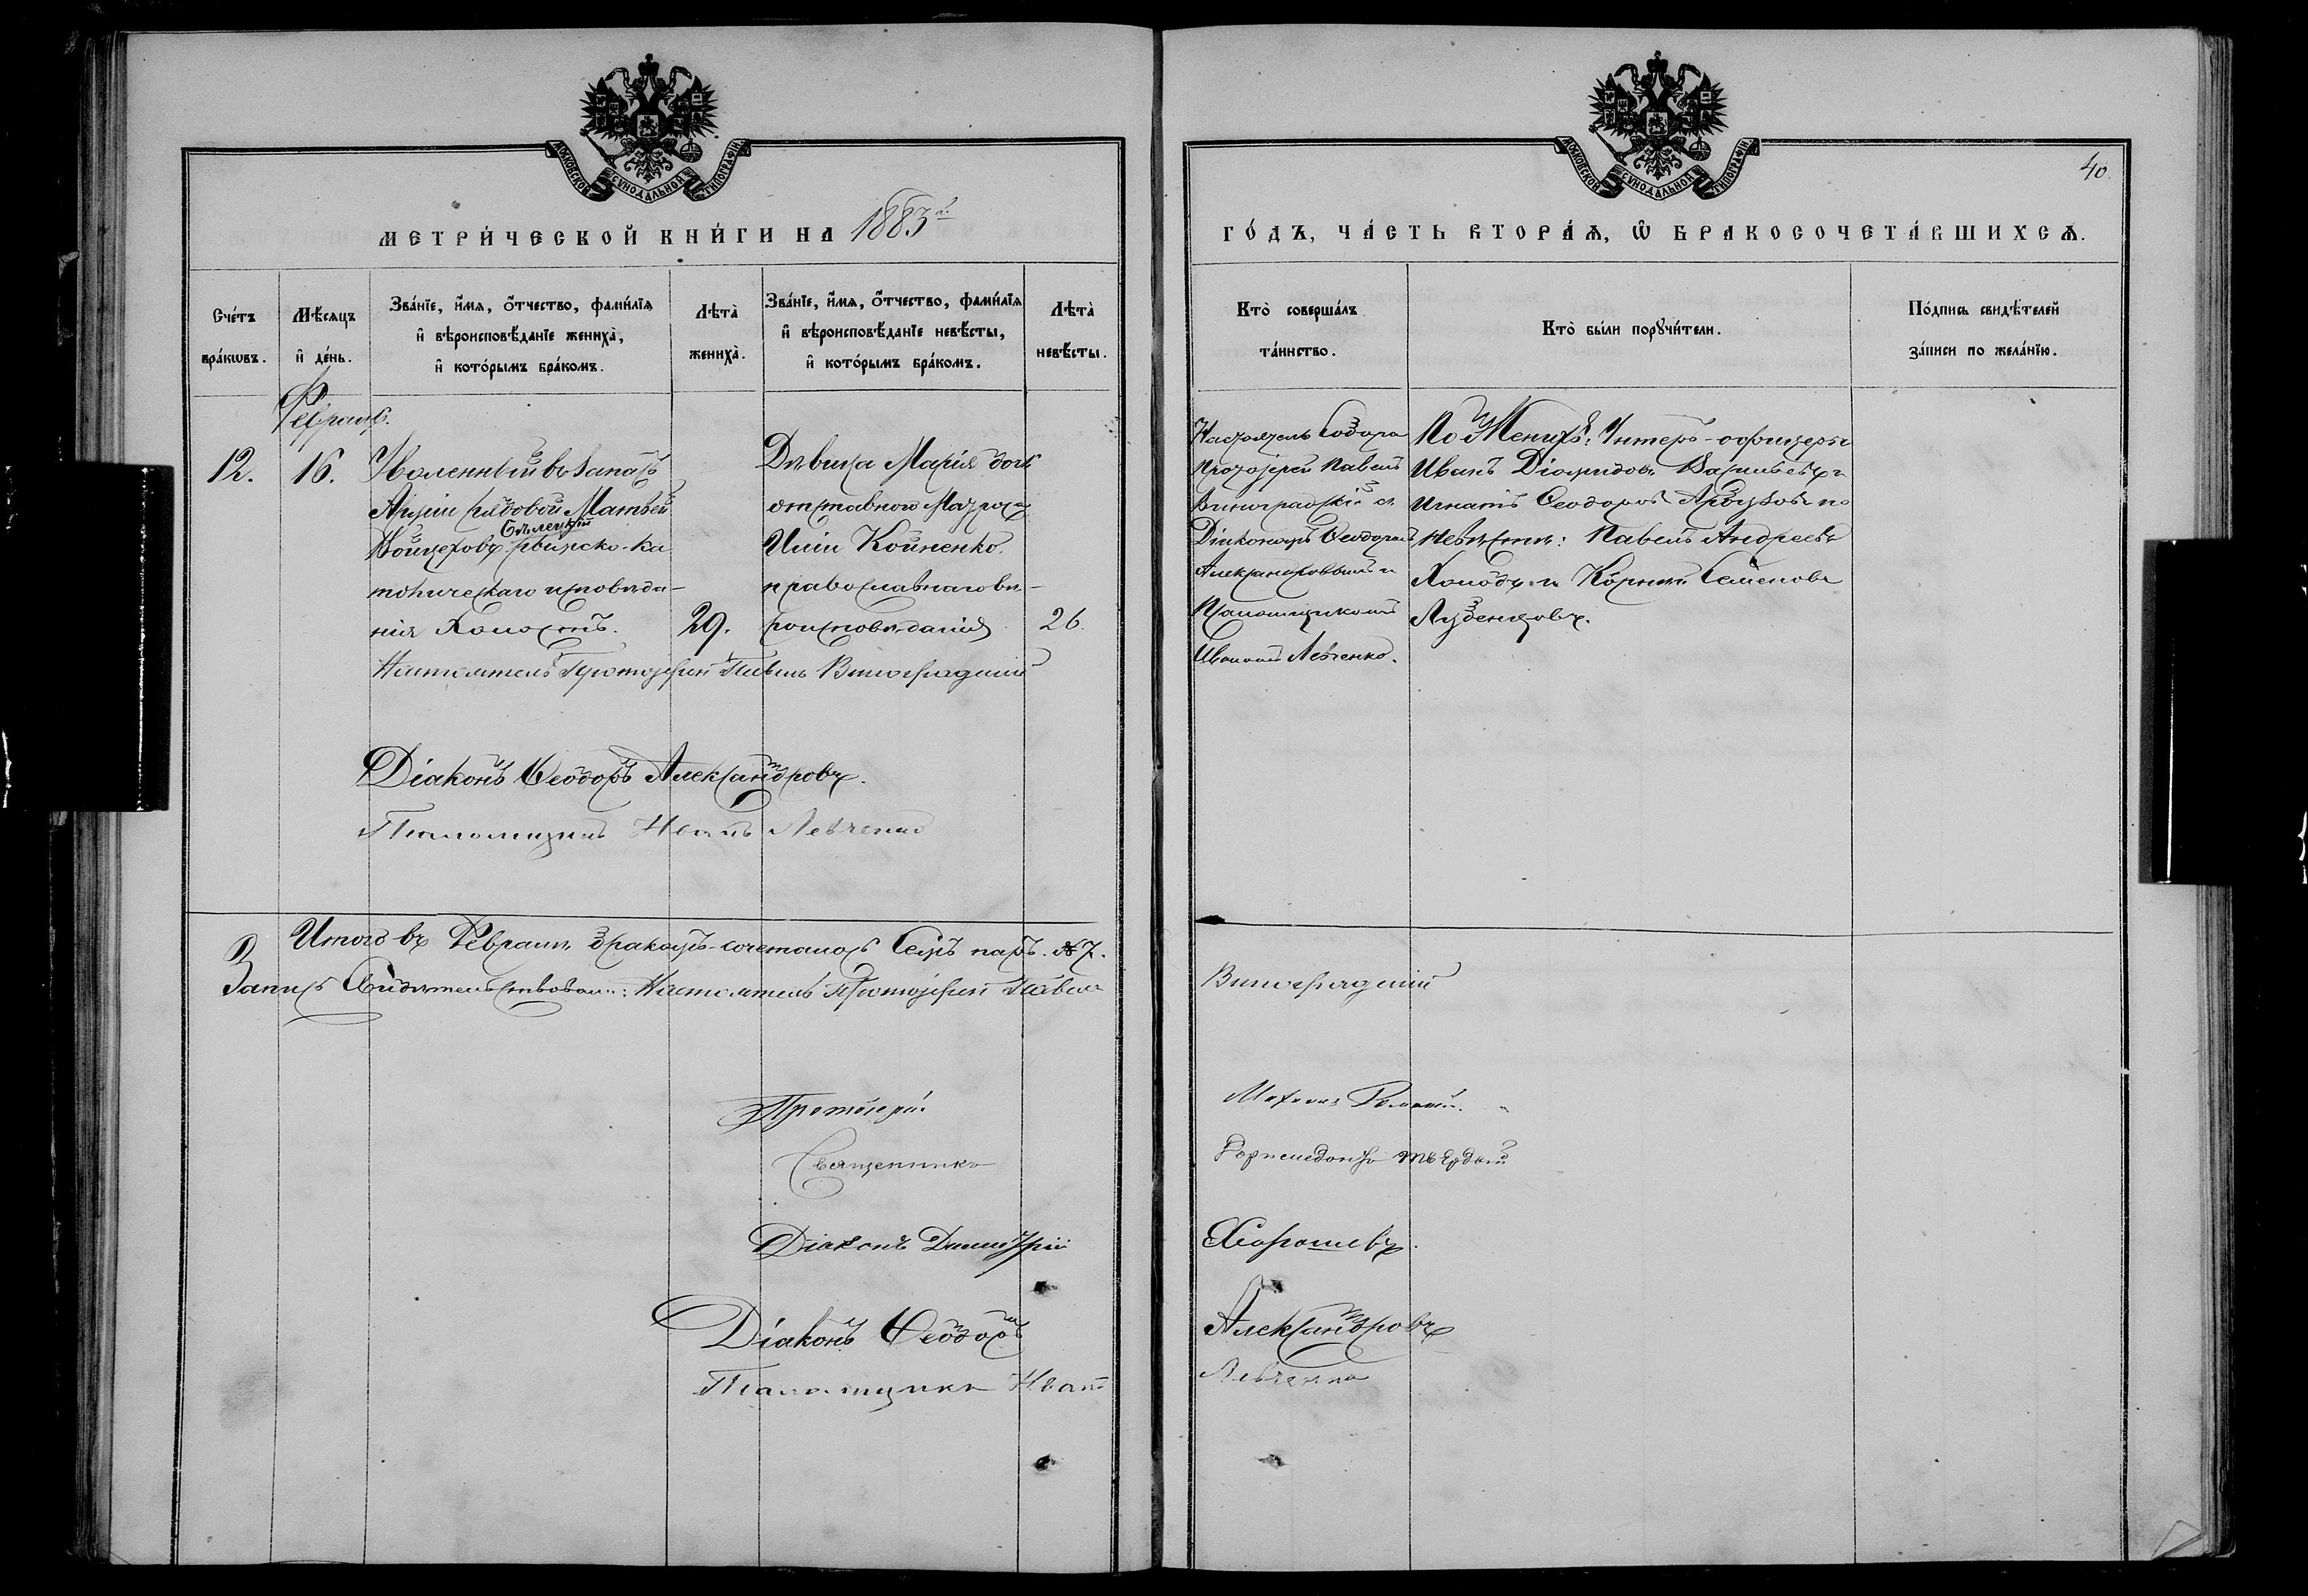 МОСКОВСКОЙ СѴНОДАЛЬНОЙ ТИПОГРАФІИ
МЕТРИ́ЧЕСКОЙ КНИ́ГИ НА 1883й
Сче́тъ бра́кѡвъ.
Мѣ́сяцъ и҆ де́нь.
Зва́нїе, и҆́мя, ѻ҆́тчество, фами́лїя и҆ вѣроисповѣ́данїе жениха̀, и҆ кото́рымъ бра́комъ.
Лѣта̀ жениха̀.
Зва́нїе, и҆́мя, ѻ҆́тчество, фами́лїя и҆ вѣроисповѣ́данїе невѣ́сты, и҆ кото́рымъ бра́комъ.
Лѣта̀ невѣ́сты.
Февраль.
12.
16.
Уволенный въ запасъ
Арміи рядовой Матвей
Бѣлецкій
Войцеховъ римско-ка
толическаго исповѣда-
нія холостъ.
29.
Дѣвица Марія дочь
отставного Матроса
Иліи Койненко.
православнаго вѣ-
роисповѣданія
26.
Настоятель Протоіерей Павелъ Виноградскій
Діаконъ Ѳеодоръ Александровъ.
Псаломщикъ Иванъ Левченко
Итого въ Февралѣ бракомъ-сочеталось Семь паръ. № 7.
Запись Свидѣтельствовали: Настоятель Протоіерей Павелъ
Протоіерей
Священникъ
Діаконъ Димитрій
Діаконъ Ѳеодоръ
Псаломщикъ Иванъ
МОСКОВСКОЙ СѴНОДАЛЬНОЙ ТИПОГРАФІИ
40.
ГО́ДЪ, ЧА́СТЬ ВТОРА́Ѧ, Ѿ БРАКОСОЧЕТА́ВШИХСѦ.
Кто̀ соверша́лъ та́инство.
Кто̀ бы́ли порꙋчи́тели.
По́дпись свидѣ́телей за́писи по жела́нїю.
Настоятель Собора
Протоіерей Павелъ
Виноградскій съ
Діакономъ Ѳеодоромъ
Александровымъ и
Псаломщикомъ
Иваномъ Левченко.
По Женихѣ: Унтеръ-офицеры
Иванъ Діомидовъ Васильевъ и
Игнатъ Ѳеодоровъ Арбузовъ по
Невѣстѣ: Павелъ Андреевъ
Холодъ и Корнилій Семеновъ
Лузенцовъ.
Виноградскій
Хорошевъ.
Александровъ
Левченко